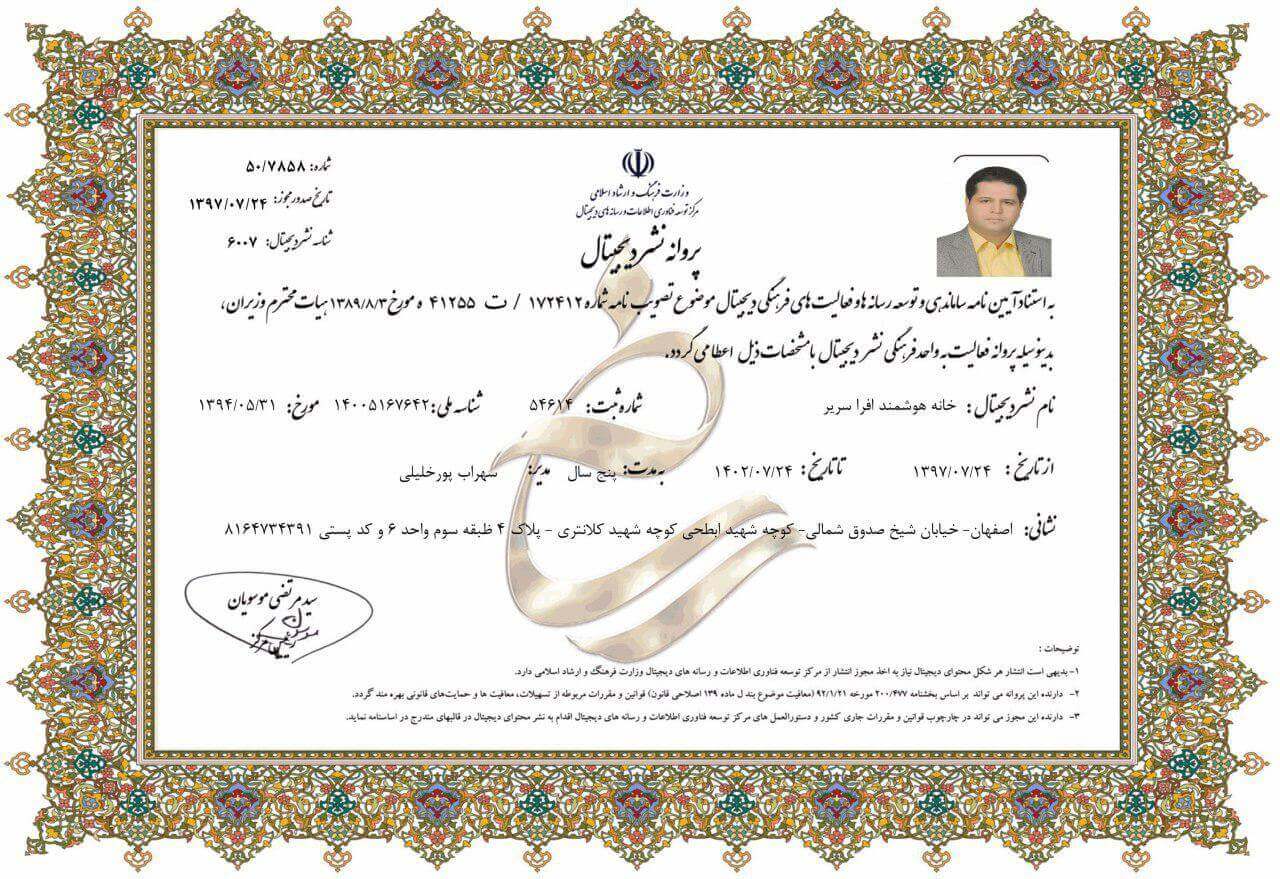 شماره: ۵۰/۷۸۵۸
تاریخ صدور مجوز: ۱۳۹۷/۰۷/۲۴
شناسه نشر دیجیتال: ۶۰۰۷
وزارت فرهنگ و ارشاد اسلامی
مرکز توسعه فناوری اطلاعات و رسانه های دیجیتال
پروانه نشر دیجیتال
به استناد آیین نامه ساماندهی و توسعه رسانه ها و فعالیت های فرهنگی دیجیتال موضوع تصویب نامه شماره ۱۷۲۴۱۲ / ت ۴۱۲۵۵ ه مورخ ۱۳۸۹/۸/۳ هیات محترم وزیران،
بدینوسیله پروانه فعالیت به واحد فرهنگی نشر دیجیتال با مشخصات ذیل اعطا می گردد.
نام نشر دیجیتال: خانه هوشمند افرا سریر شماره ثبت: ۵۴۶۱۴ شناسه ملی: ۱۴۰۰۵۱۶۷۶۴۲ مورخ: ۱۳۹۴/۰۵/۳۱
از تاریخ: ۱۳۹۷/۰۷/۲۴ تا تاریخ: ۱۴۰۲/۰۷/۲۴ به مدت: پنج سال مدیر: سهراب پورخلیلی
نشانی: اصفهان- خیابان شیخ صدوق شمالی- کوچه شهید ابطحی کوچه شهید کلانتری - پلاک ۴ ظبقه سوم واحد ۶ و کد پستی ۸۱۶۴۷۳۴۳۹۱
سید مرتضی موسویان
توضیحات :
۱- بدیهی است انتشار هر شکل محتوای دیجیتال نیاز به اخذ مجوز انتشار از مرکز توسعه فناوری اطلاعات و رسانه های دیجیتال وزارت فرهنگ و ارشاد اسلامی دارد.
۲- دارنده این پروانه می تواند بر اساس بخشنامه ۲۰۰/۴۷۷ مورخه ۹۲/۱/۲۱ (معافیت موضوع بند ل ماده ۱۳۹ اصلاحی قانون) قوانین و مقررات مربوطه از تسهیلات، معافیت ها و حمایت‌های قانونی بهره مند گردد.
۳- دارنده این مجوز می تواند در چارچوب قوانین و مقررات جاری کشور و دستورالعمل های مرکز توسعه فناوری اطلاعات و رسانه های دیجیتال اقدام به نشر محتوای دیجیتال در قالبهای مندرج در اساسنامه نماید.